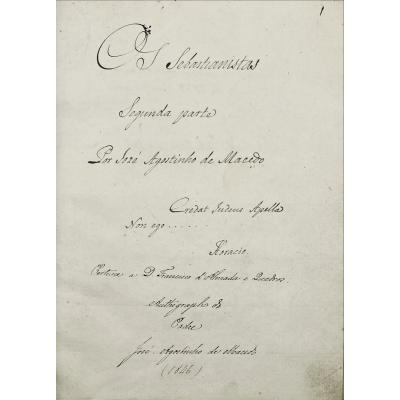 1
Os Sebastianistas
Segunda parte
Por José Agostinho de Macedo
Credat Judeus Apella
Non ego.....
Horacio.
Pertence a D. Francisco d'Almada e Quadros
Authographo do
Padre
José Agostinho de Macedo
(1846)